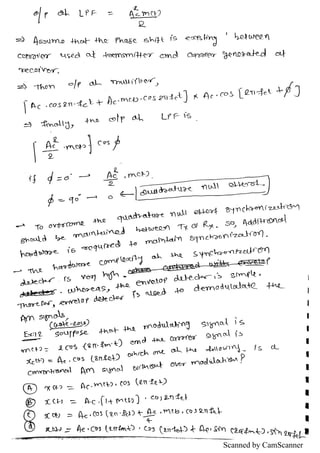 o/p of LPF = Ac² m(t) / 2
=> Assume that the Phase shift is existing between
carrier used at transmitter and carrier generated at
receiver.
=> Then o/p of multiplier,
[Ac.cos2πfct + Ac.m(t).cos2πfct] × Ac.cos[2πfct + ϕ]
=> finally, the o/p of LPF is
[Ac²/2 .m(t)] cos ϕ
if ϕ=0° → Ac²/2 .m(t).
ϕ=90° → 0 ← Quadrature null effect.
→ To overcome the quadrature null effect synchronization
should be maintained between Tx & Rx. so, Additional
hardware is required to maintain synchronization.
→ The hardware complexity of the synchronization
detector is very high.
whereas, the envelop detector is simple.
Therefore, envelop detector is used to demodulate the
Am signals.
Ex:12 suppose that the modulating signal is
m(t) = 2cos(2πfmt) and the carrier signal is
xc(t) = Ac.cos(2πfct) which one of the following is a
conventional Am signal without over modulation?
(A) x(t) = Ac.m(t).cos(2πfct)
(B) x(t) = Ac.[1+m(t)].cos2πfct
(C) x(t) = Ac.cos(2πfct) + Ac/4 m(t).cos2πfct
(d) x(t) = Ac.cos(2πfmt).cos(2πfct) + Ac.sin(2πfmt).sin2πfct
Scanned by CamScanner